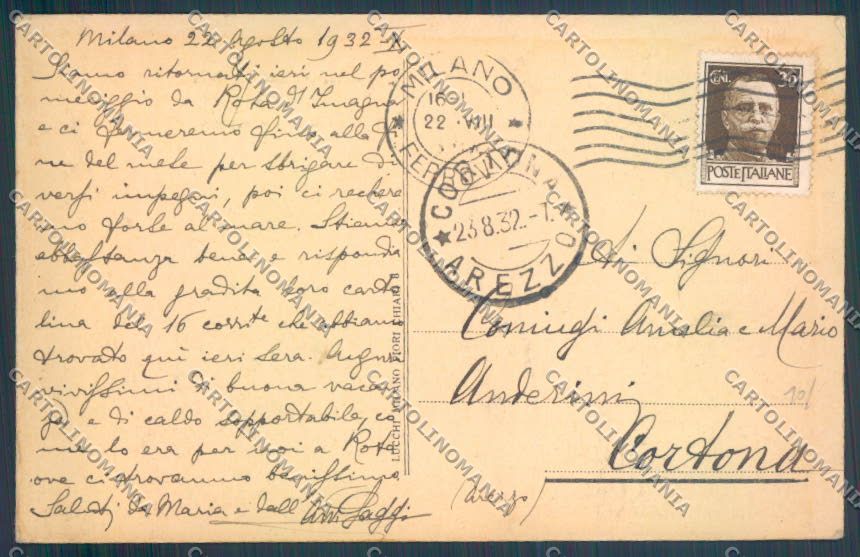 Milano 22 Agosto 1932-X
Siamo ritornati ieri nel po
meriggio da Rota d'Imagna
e ci fermeremo fino alla fi
ne del mese per sbrigare di
versi impegni, poi ci reche
remo forse al mare. Stiamo
abbastanza bene e rispondia
mo alla gradita loro carto
lina del 16 corrte che abbiamo
trovato qui ieri sera. Auguri
vivissimi di buona vacan
za e di caldo sopportabile, co
me lo era per noi a Rota
ove ci trovammo benissimo.
Saluti da Maria e dall'
LUCCHI MILANO FIORI CHIARI 8
MILANO
16
22 VIII
FERROVIA
CORTONA
23.8.32.-
AREZZO
CENT. 30
POSTE ITALIANE
Ai Signori
Coniugi Amalia e Mario
Cortona
(Arezzo)
10/
CARTOLINOMANIA